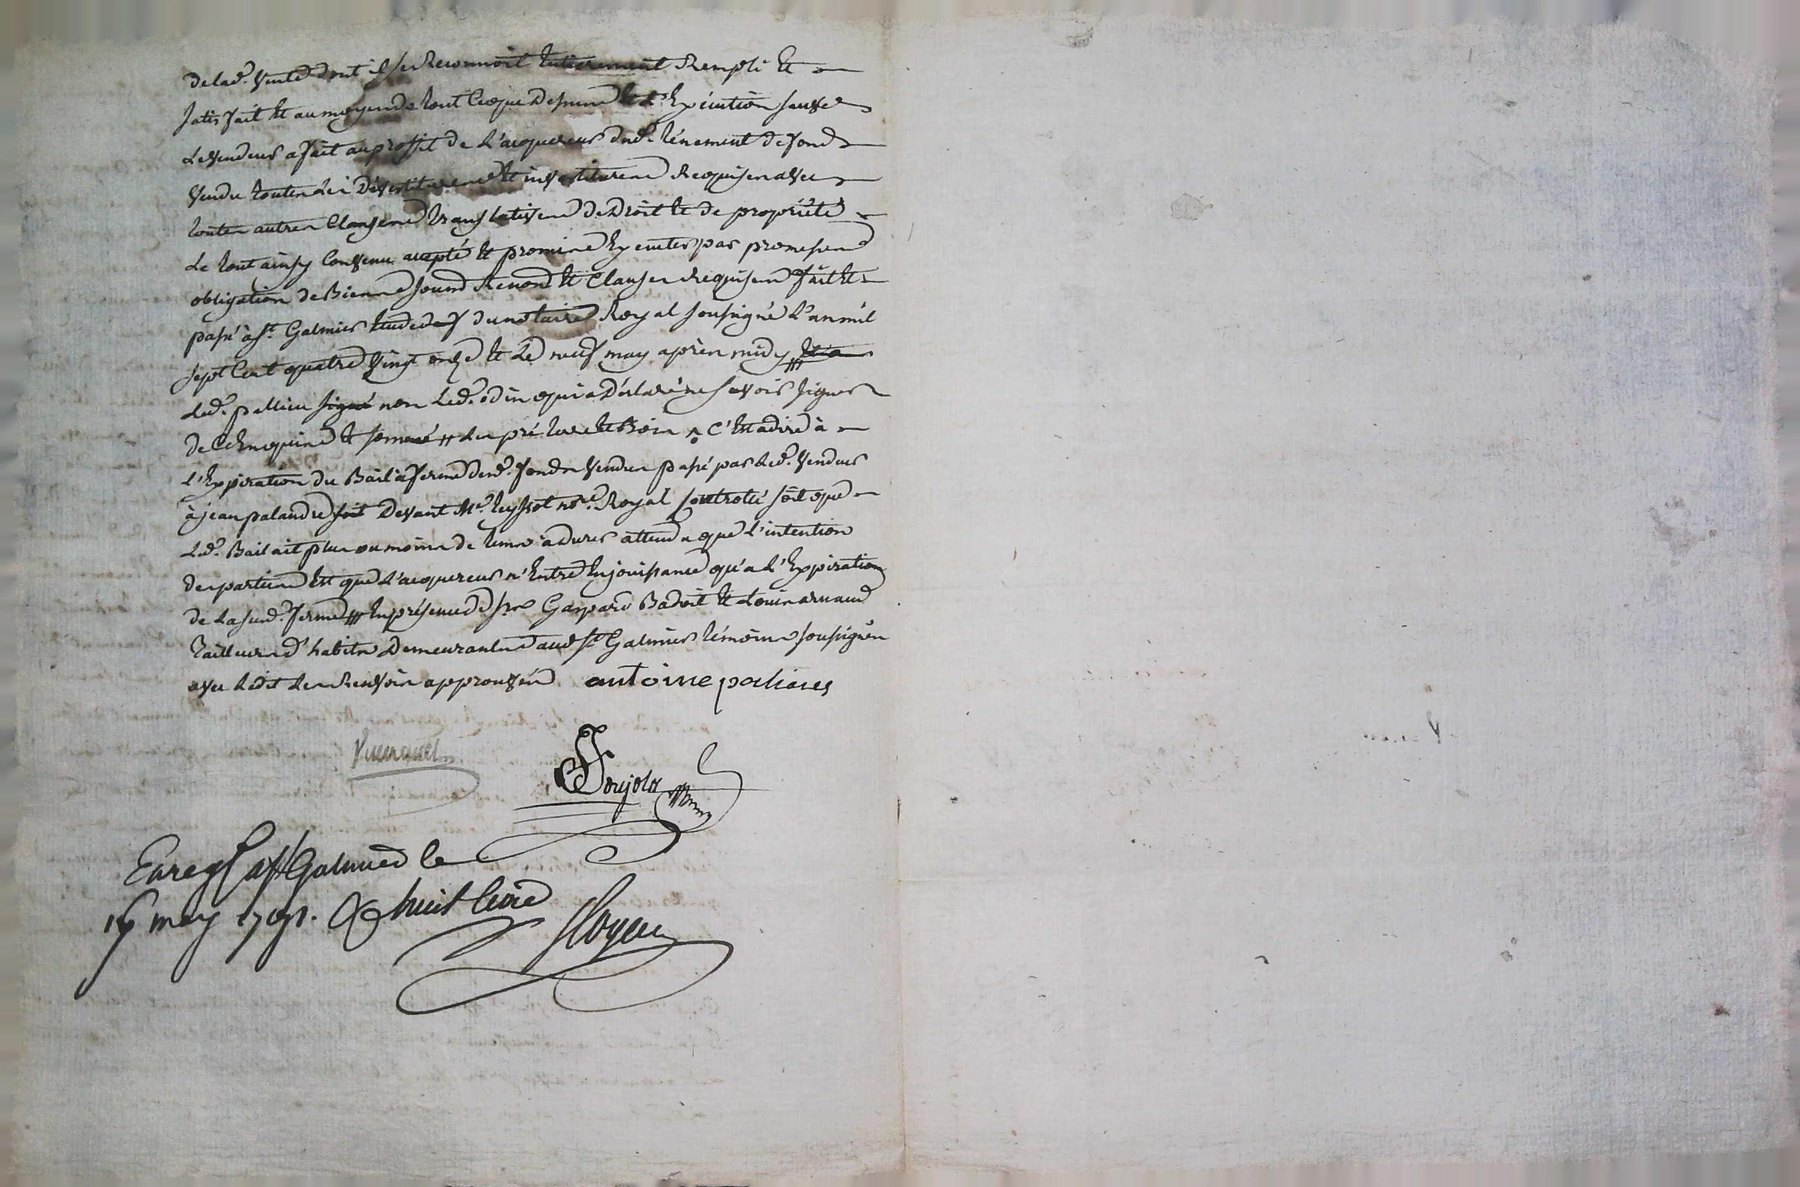 delad.e vente dont il se Reconnoit Entierement Rempli Et
satisfait Et au moyen de tout Ceque Dessus Et d.e Execution
le vendeur a fait au profit de L'acquereur dud.t ténement de fond
vendu toutes les Devestitures Et investitures Requises avec
toutes autres Clauses translatives de Droit Et de propriété
Le tout ainsy Convenu accepté Et promis Executer par promesses
obligation de Biens sous Renond Et Clauses Requises fait Et
passé à S.t Galmier Etude du notaire Royal soussigné L'an mil
sept Cent quatre vingt onze Et Le neuf may après midy
Led.t signé non Led.t odin qui a Déclaré ne savoir signer
de Ce Enquis Et sommé les pré terre Et Bois C'est adire à
L'Expiration du Bail à ferme desd.s fonds vendus passé par Led.t vendeur
à jean palandre Devant M.e not.e Royal soit que
Led.t Bail ait plus ou moins de tems à durer attendu que L'intention
des parties Est que L'acquereur n'Entre En jouissance qu'a L'Expiration
de Lasusd.e ferme En présence de Gaspard Badoit Et Louis arnaud
tailleurs d'habits Demeurants aud.t S.t Galmier témoins soussignés
avec Les Renvois approuvés antoine
Enreg.é a S.t Galmier le
may 1791. huit livre